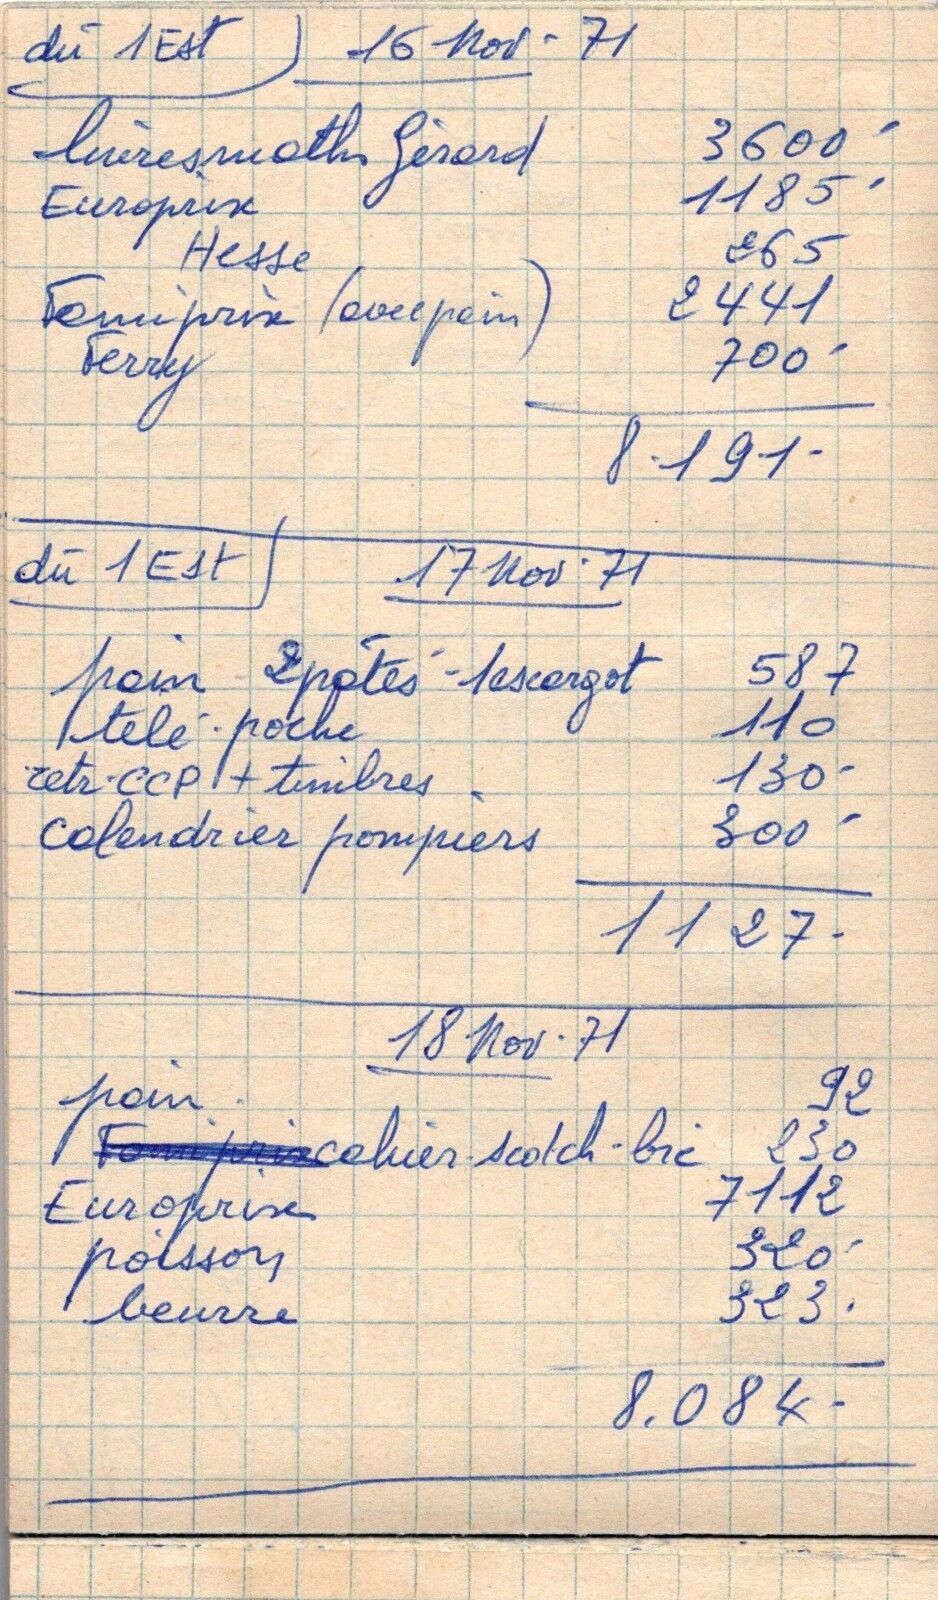 dû 1 Est) 16 Nov. 71
livres math Gérard 3600
Europrix 1185
Hesse 265
Famiprix (avec pain) 2441
Ferry 700
8.191-
dû 1 Est 17 Nov. 71
pain 2 pâtés - 1 escargot 587
télé-poche 110
retr. CCP + timbres 130-
Calendrier pompiers 300
1127-
18 Nov. 71
pain 92
cahier-scotch-bic 230
Europrix 7112
poisson 320
beurre 323.
8.084-